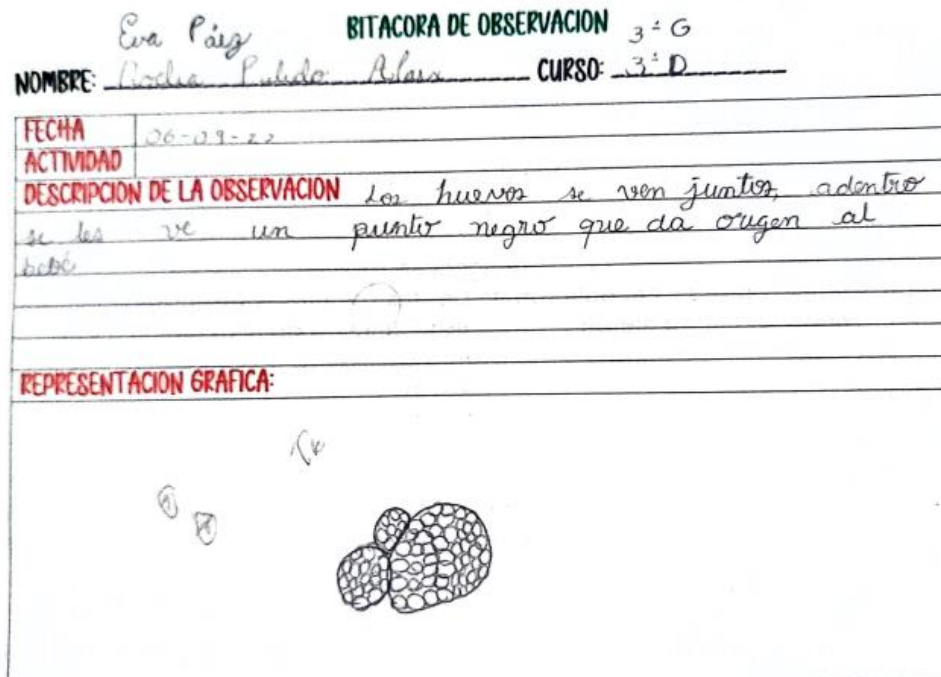 BITACORA DE OBSERVACION
Eva Páez 3° G
NOMBRE: Pulido CURSO: 3° D
FECHA 06-09-22
ACTIVIDAD
DESCRIPCION DE LA OBSERVACION Los huevos se ven juntos, adentro
se les ve un punto negro que da origen al
bebé
REPRESENTACION GRAFICA: